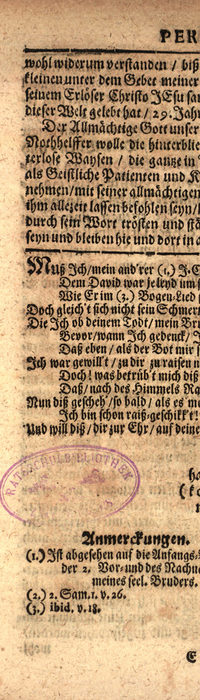 PER
wohl widerum verstanden / biß
kleinen unter dem Gebet meiner
seinem Erlöser Christo JEsu san
dieser Welt gelebt hat / 29. Jahr
Der Allmächtige Gott unser
Nothhelffer wolle die hinterblie
terlose Waysen / die gantze in
als Geistliche Patienten und K
nehmen / mit seiner allmächtigen
ihm allezeit lassen befohlen seyn /
durch sein Wort trösten und stä
seyn und bleiben hie und dort in a
Muß Jch / mein and'rer (1.) J-C
Dem David war so leyd um s
Wie Er im (2.) Bogen-Lied
Doch gleich't sich nicht sein Schmer
Die Jch ob deinem Todt / mein Bru
Bevor / wann Jch gedenck /
Daß eben / als der Bot mir
Jch war gewill't / zu dir zu raisen
Doch! was betrüb't mich diß
Daß / nach des Himmels Ra
Nun diß gescheh' / so bald / als es
Jch bin schon raiß-geschikk't!
Und will diß / dir zur Ehr / auf deine
RATSSCHULBIBLIOTHEK
ha
(ko
n
Anmerckungen.
(1.) Jst abgesehen auf die Anfangs-
der 2. Vor- und des Nachna
meines seel. Bruders.
(2.) 2. Sam. 1. v. 26.
(3.) ibid. v. 18.
E